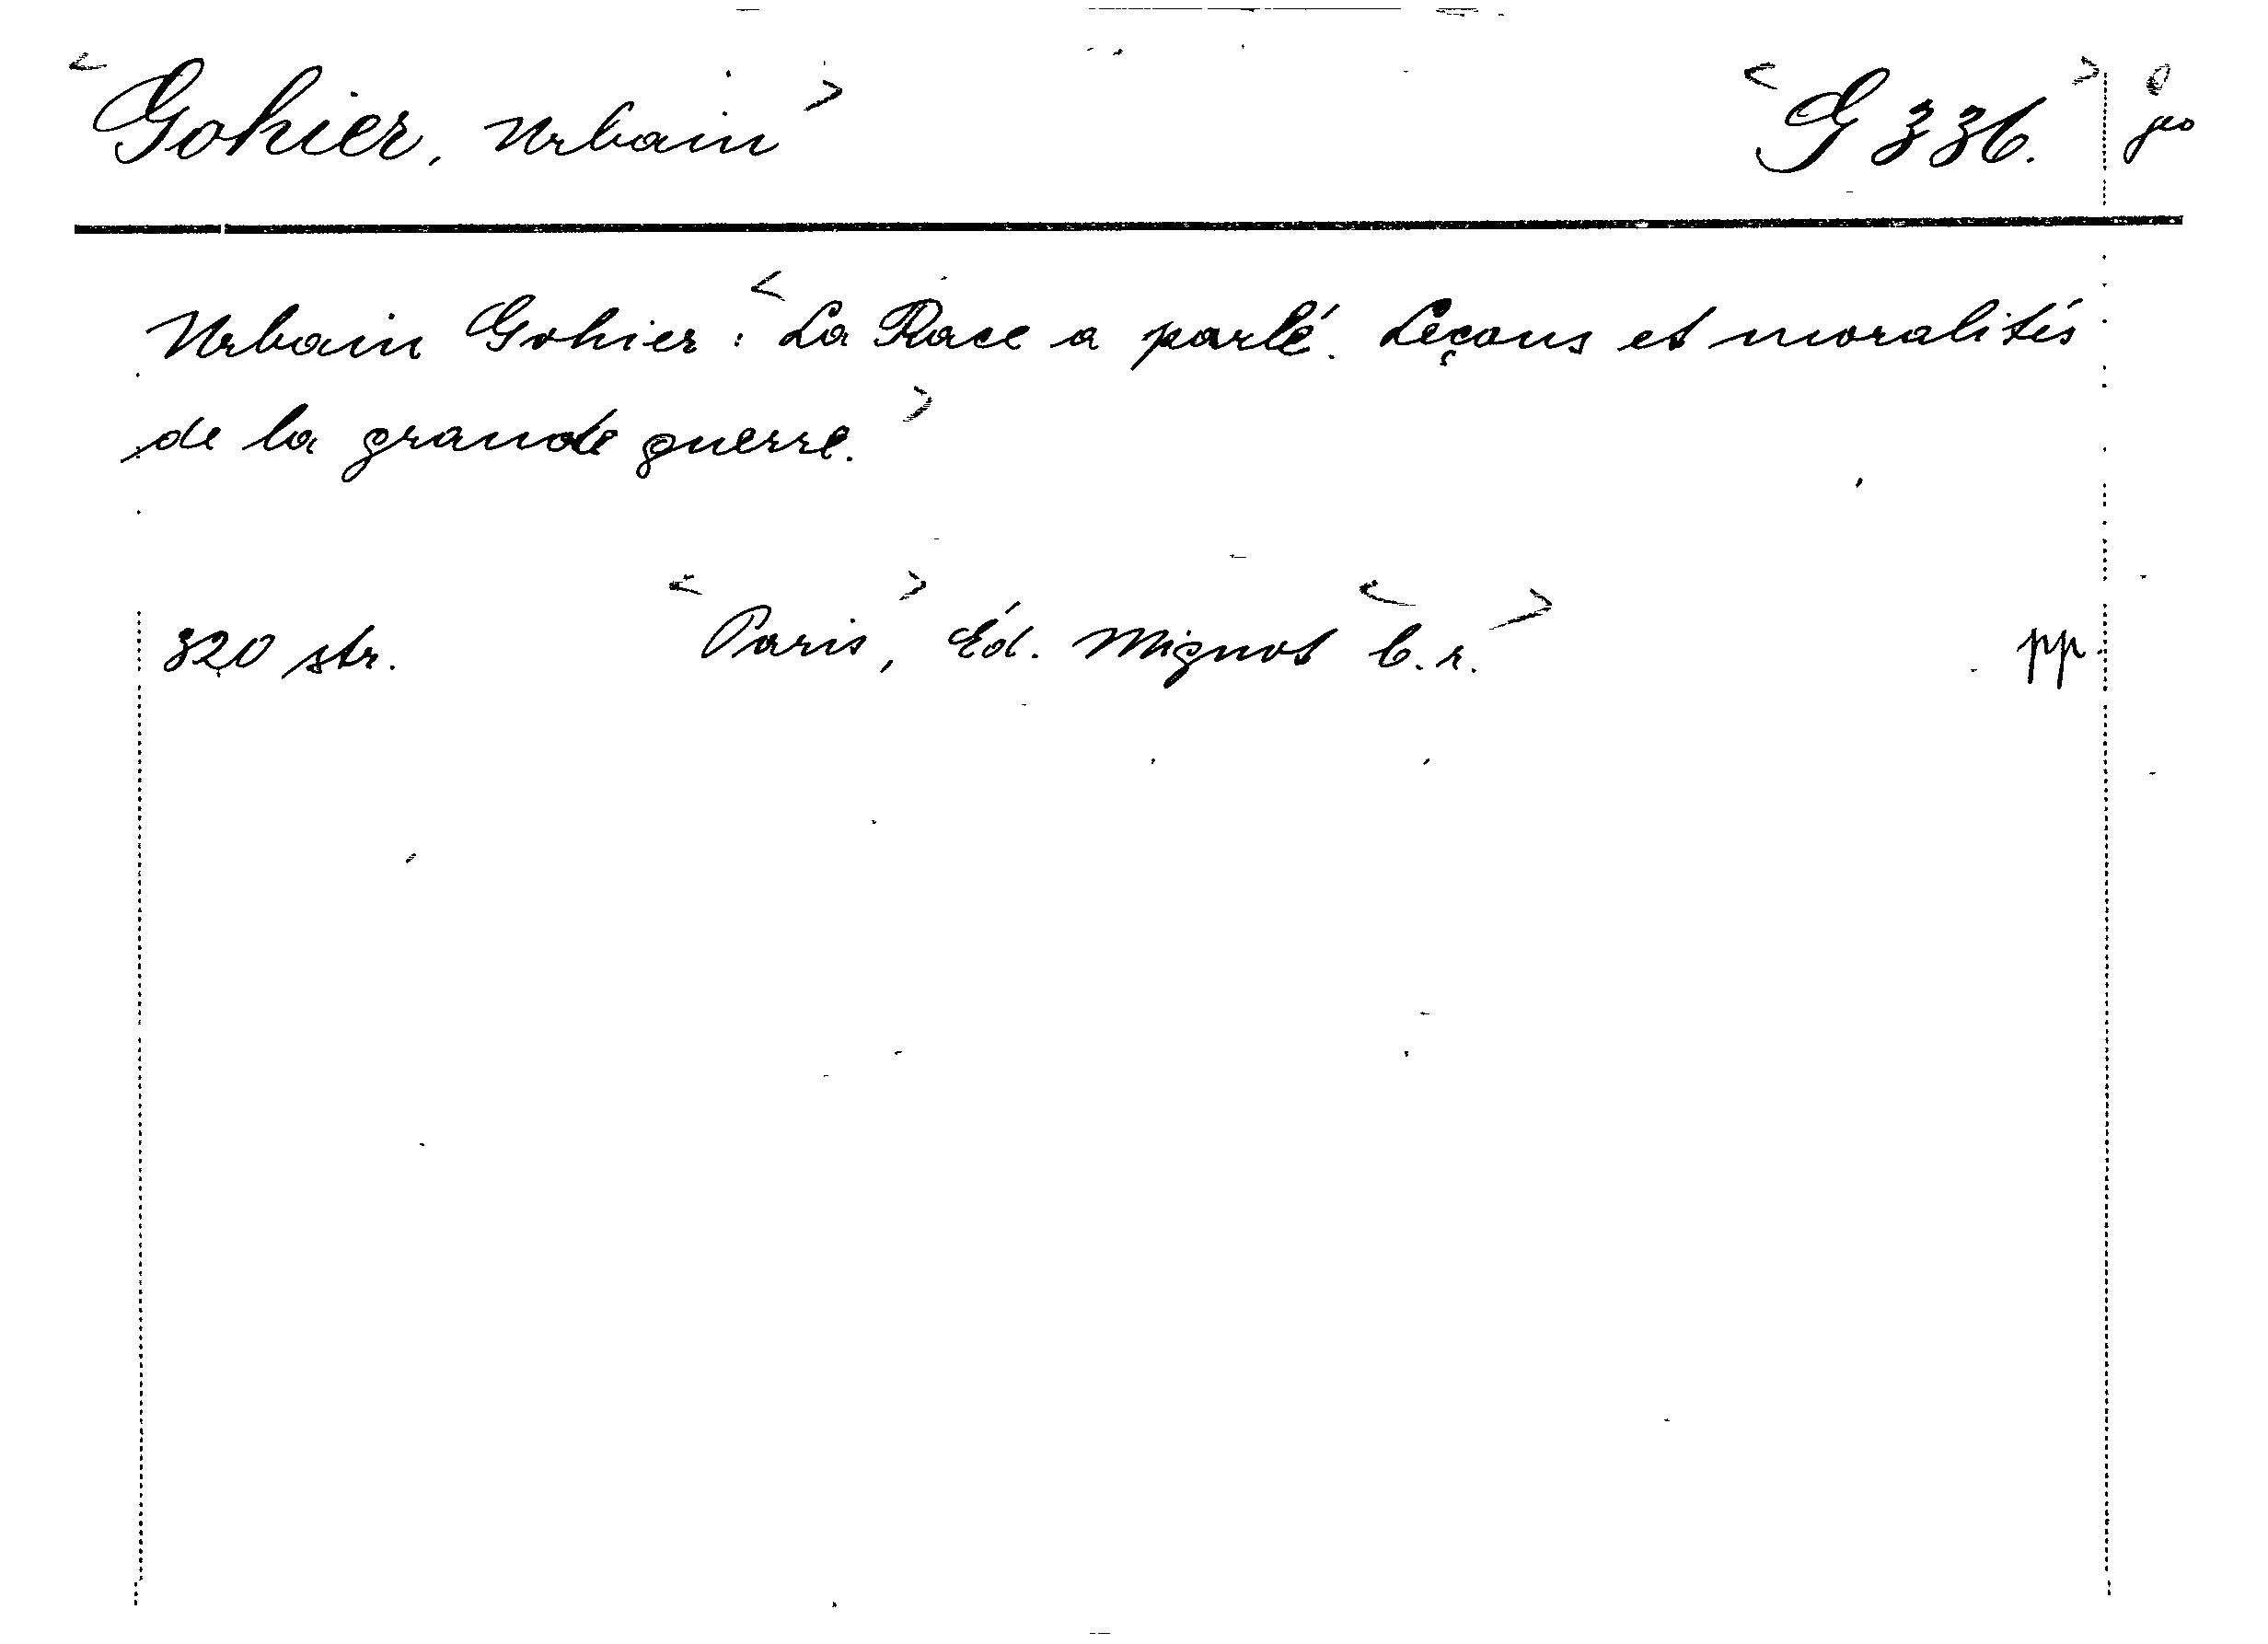 <Gohier, Urbain> <G 336.>
Urbain Gohier: <La Race a parlé. Leçons et moralités
de la grande guerre.>
320 str. <Paris>, Éd. Mignot <b.r.> pp.